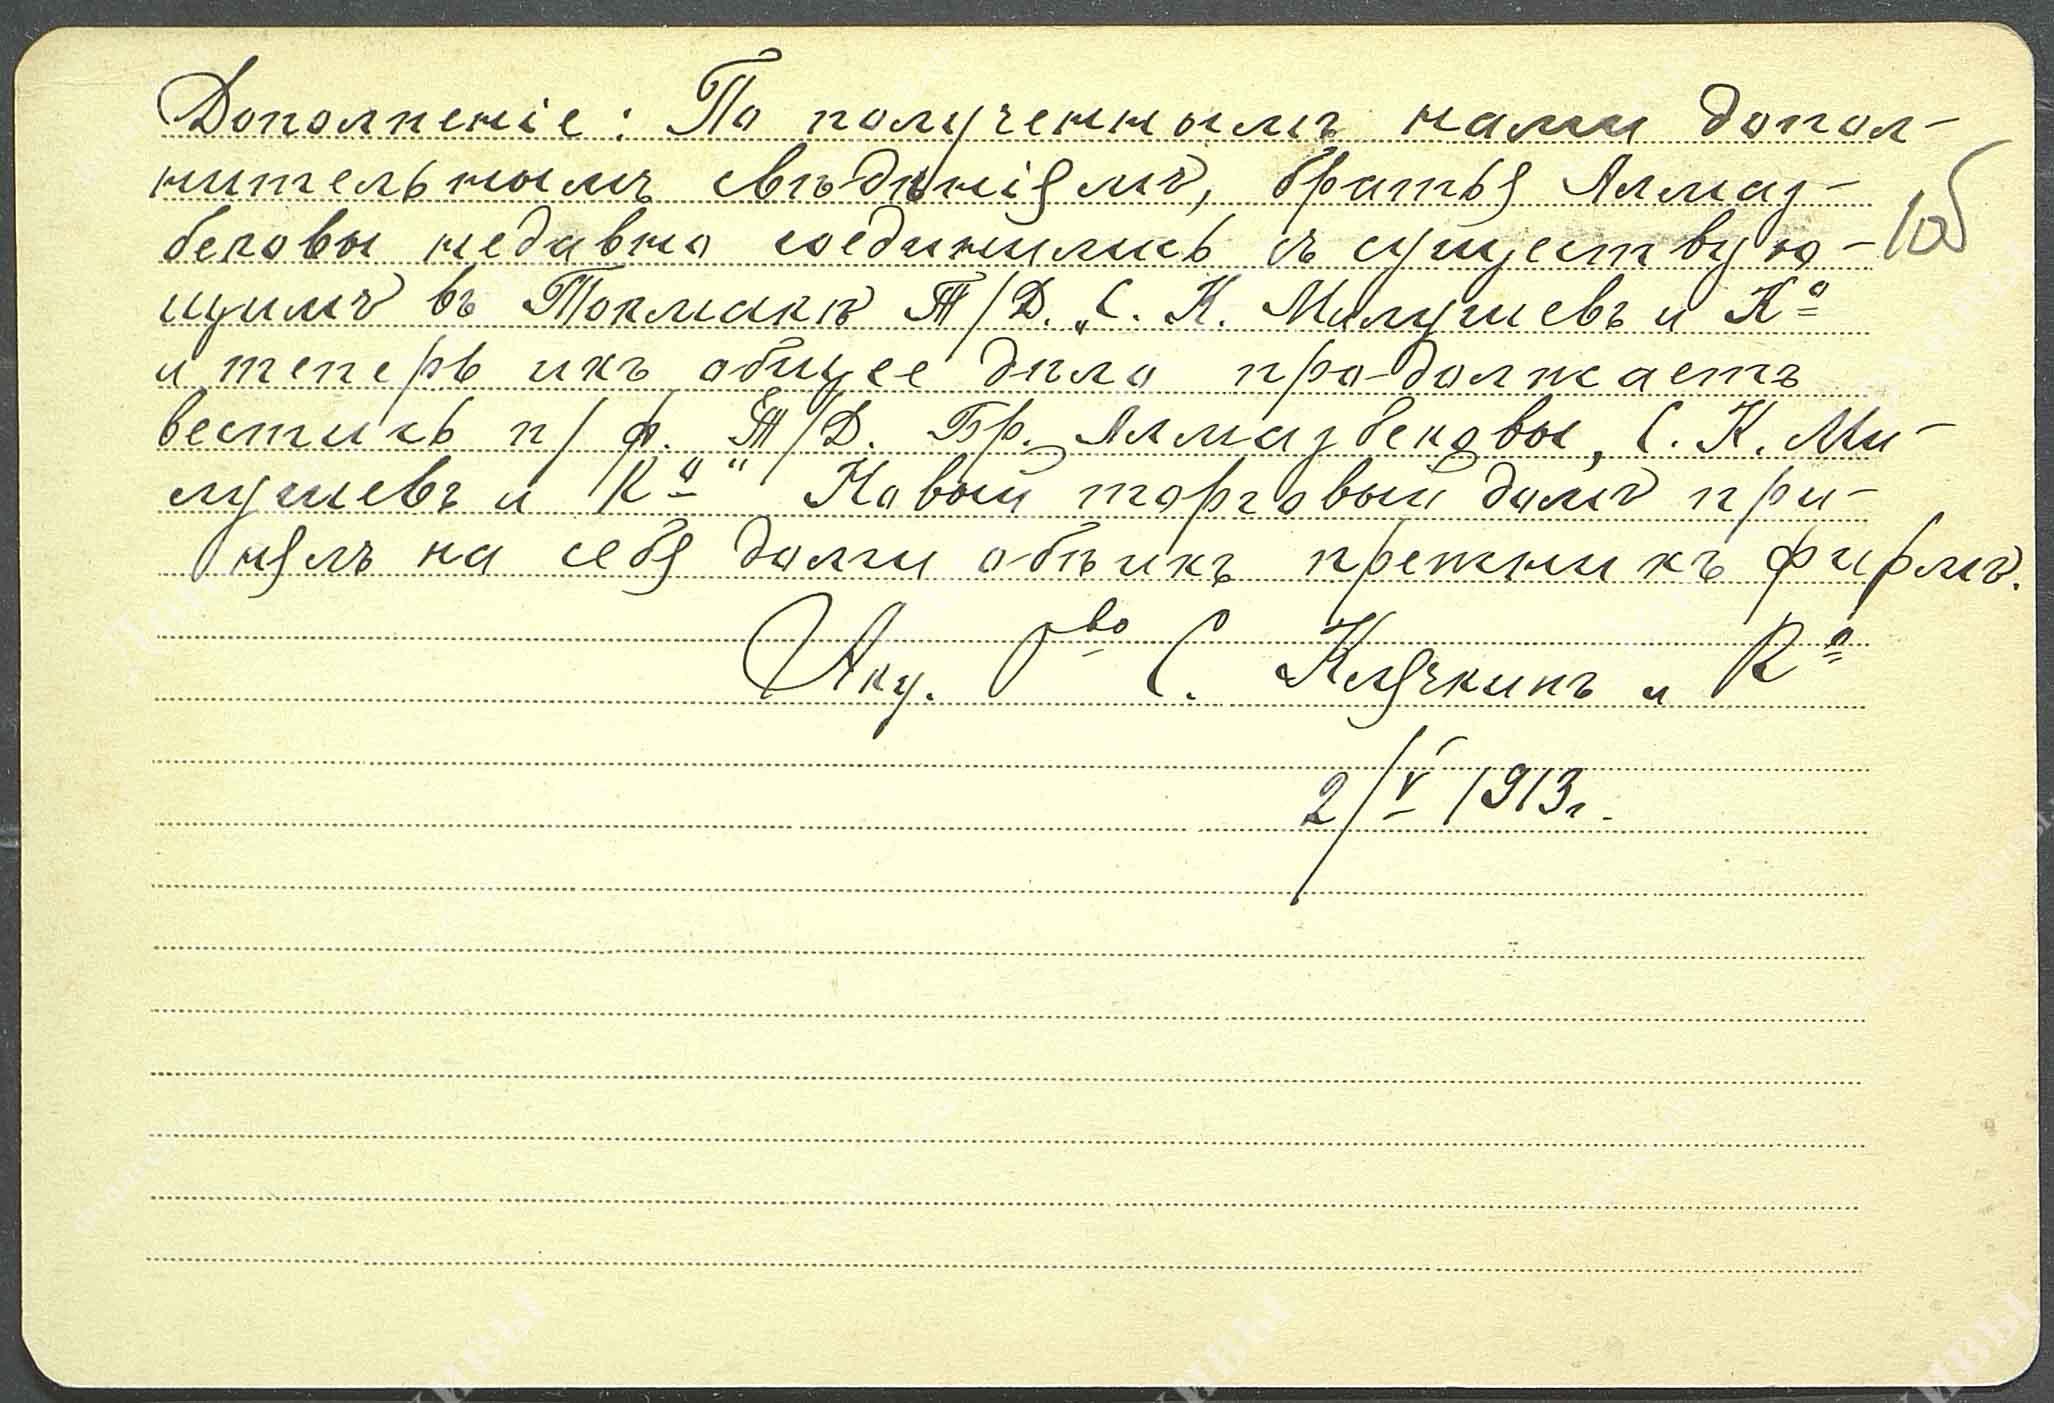 Дополненіе: По полученнымъ нами допол-
нительнымъ свѣдѣніямъ, братья Алмаз-
бековы недавно соединились съ существую-
щимъ въ Токмакѣ Т/Д. „С. К. Милушевъ и Кº
и теперь ихъ общее дѣло продолжаетъ
вестись п/ф. „Т/Д. Бр. Алмазбековы, С. К. Ми-
лушевъ и Кº“ Новый торговый домъ при-
нялъ на себя долги обѣихъ прежнихъ фирмъ.
Акц. Oво С. Клячкинъ и Кº
2/V 1913 г.
10б